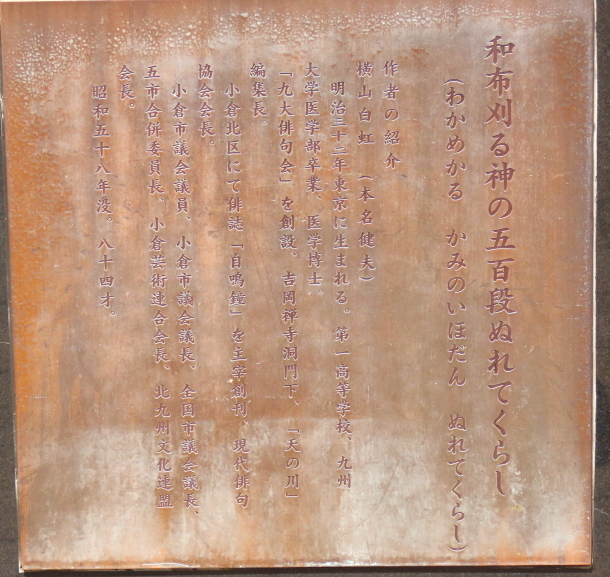 和布刈る神の五百段ぬれてくらし
(わかめかる　かみのいほだん　ぬれてくらし)
作者の紹介
横山白虹　(本名健夫)
明治三十二年東京に生まれる。第一高等学校、九州
大学医学部卒業、医学博士。
「九大俳句会」を創設。吉岡禅寺洞門下、「天の川」
編集長。
小倉北区にて俳誌「自鳴鐘」を主宰創刊、現代俳句
協会会長。
小倉市議会議員、小倉市議会議長、全国市議会議長、
五市合併委員長、小倉芸術連合会長、北九州文化連盟
会長。
昭和五十八年没。八十四才。